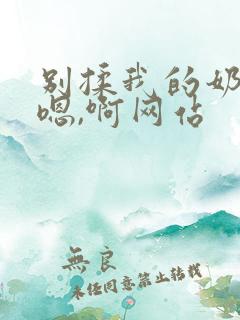 别揉我的奶
嗯,啊网佔
無良
未经同意禁止转载